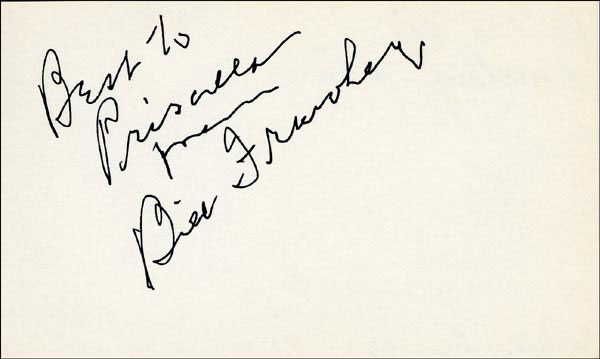 Best to
Priscilla
from
Bill Frawley